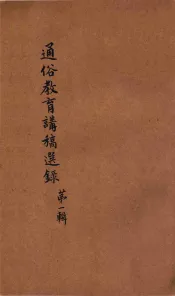 通俗教育講稿選錄
第一輯